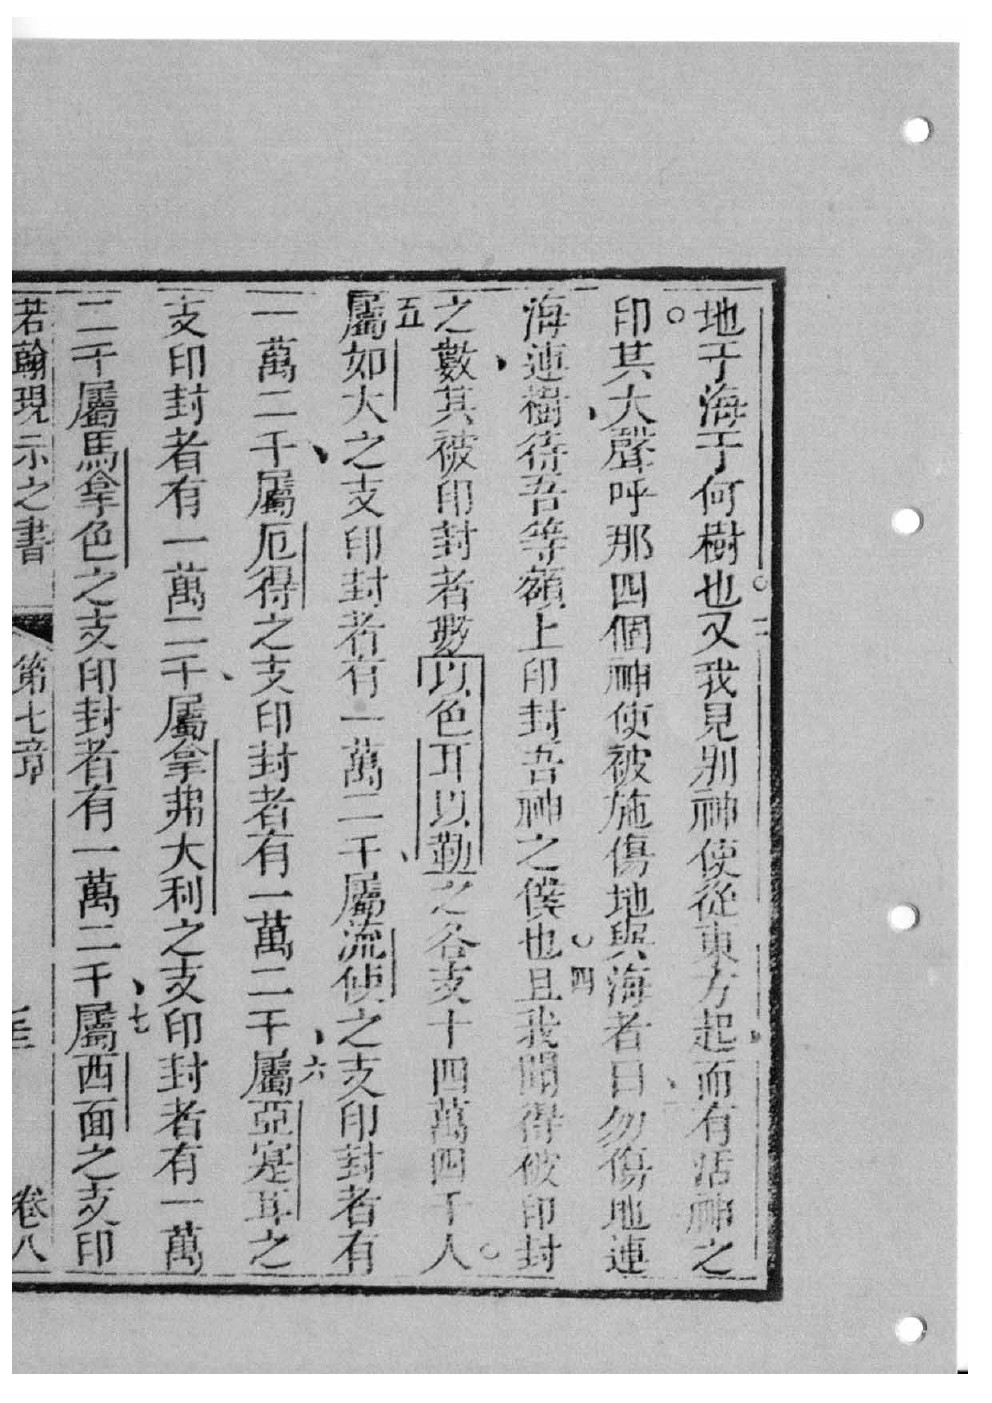 地于海于何樹也○二又我見別神使從東方起、而有活神之
印○其大聲呼那四個神使被施傷地與海者曰、三勿傷地連
海連樹、待吾等額上印封吾神之僕也○四且我聞得被印封
之數、其被印封者數以色耳以勒之各支十四萬四千人○
五屬如大之支印封者有一萬二千、屬流便之支印封者有
一萬二千、屬厄得之支印封者有一萬二千、六屬亞寔耳之
支印封者有一萬二千、屬拿弗大利之支印封者有一萬
二千屬馬拿色之支印封者有一萬二千、七屬西面之支印
若翰現示之書 第七章 卷八